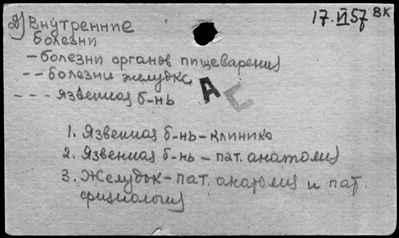 2) Внутренние 17.VI57 ВК
болезни
– болезни органов пищеварения
– – болезни желудка
– – – язвенная б-нь
АС
1. Язвенная б-нь – клиника
2. Язвенная б-нь – пат. анатомия
3. Желудок – пат. анатомия и пат.
физиология